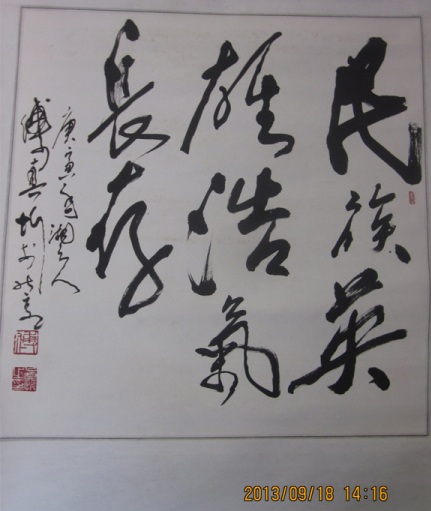 民族英
雄浩氣
長存
庚寅
傅真忻
2013/09/18 14:16